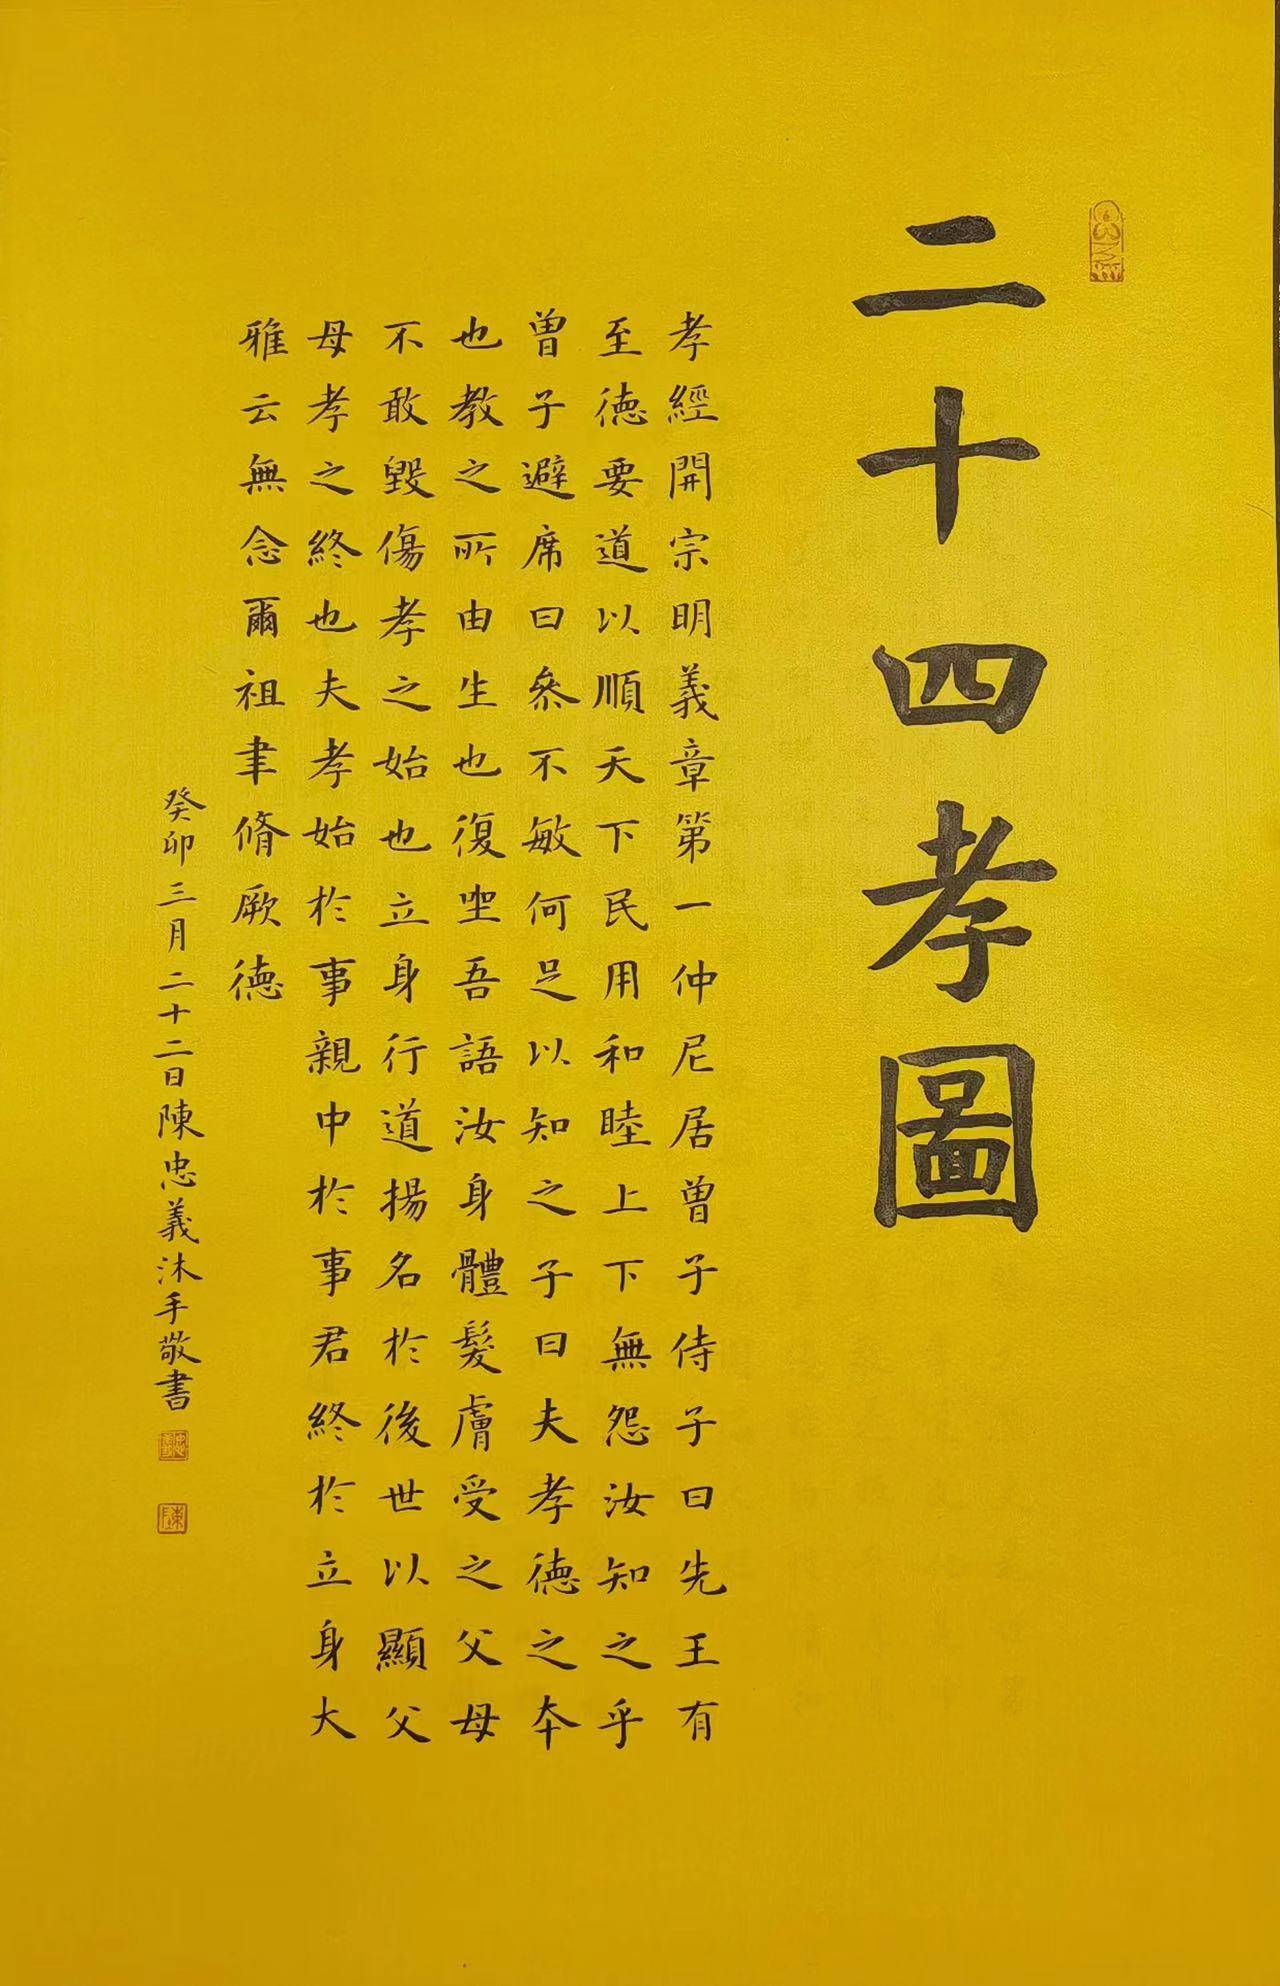 二十四孝圖
孝經開宗明義章第一仲尼居曾子侍子曰先王有
至德要道以順天下民用和睦上下無怨汝知之乎
曾子避席曰參不敏何足以知之子曰夫孝德之本
也教之所由生也復坐吾語汝身體髮膚受之父母
不敢毀傷孝之始也立身行道揚名於後世以顯父
母孝之終也夫孝始於事親中於事君終於立身大
雅云無念爾祖聿脩厥德
癸卯三月二十二日陳忠義沐手敬書